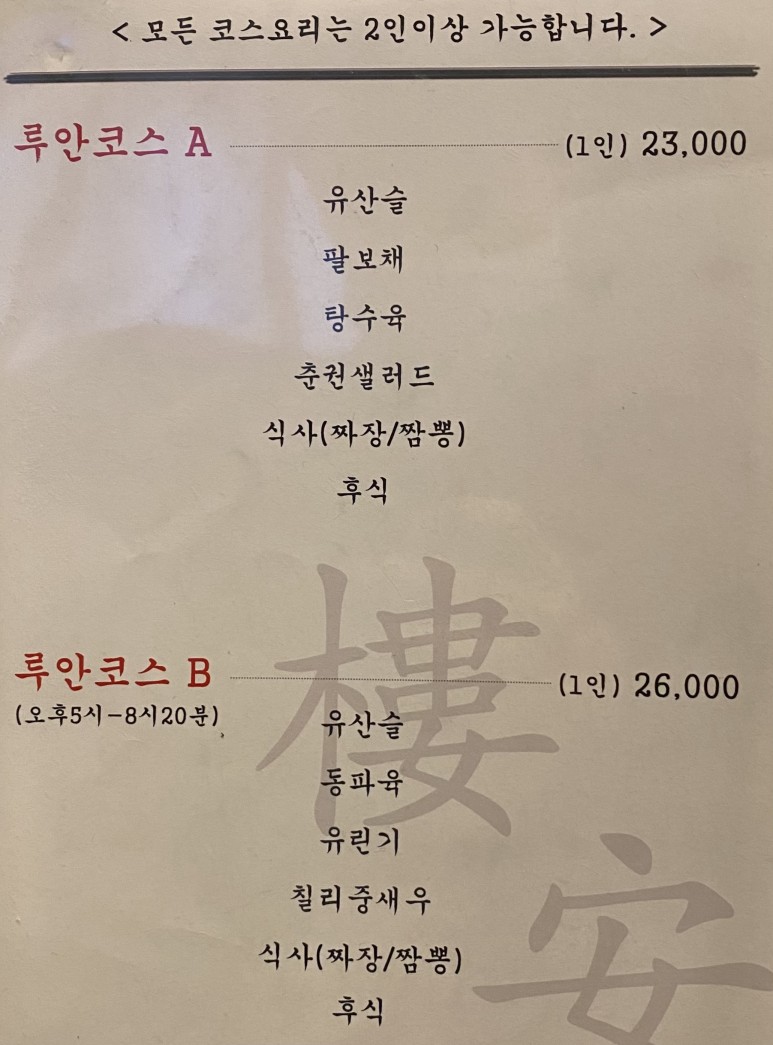 < 모든 코스요리는 2인이상 가능합니다. >
루안코스 A (1인) 23,000
유산슬
팔보채
탕수육
춘권샐러드
식사(짜장/짬뽕)
후식
루안코스 B (1인) 26,000
(오후5시-8시20분)
유산슬
동파육
유린기
칠리중새우
식사(짜장/짬뽕)
후식
樓
安